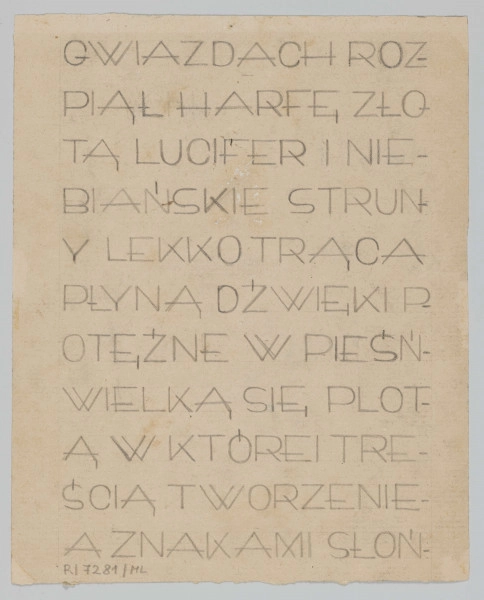 GWIAZDACH ROZ-
PIĄŁ HARFĘ ZŁO-
TĄ LUCIFER I NIE-
BIAŃSKIE STRUN-
Y LEKKO TRĄCA
PŁYNĄ DŹWIĘKI P-
OTĘŻNE W PIEŚŃ-
WIELKĄ SIĘ PLOT-
Ą W KTÓREI TRE-
ŚCIĄ TWORZENIE-
A ZNAKAMI SŁOŃ-
RI 7281/ML